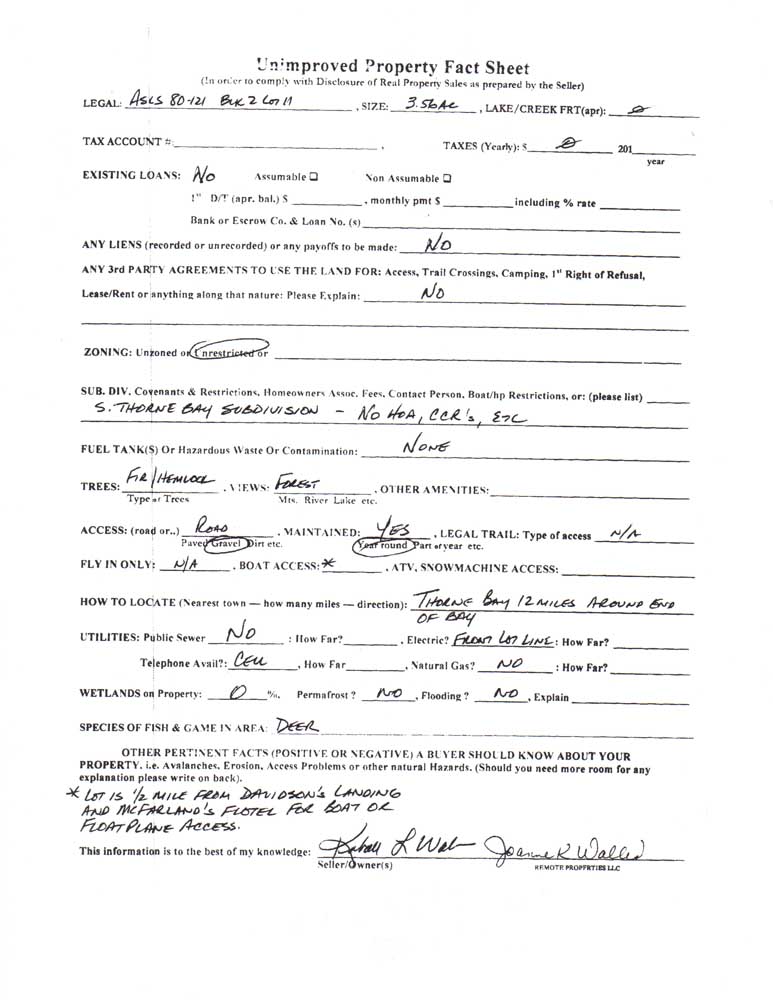 Unimproved Property Fact Sheet
(In order to comply with Disclosure of Real Property Sales as prepared by the Seller)
LEGAL: ASLS 80-121 BLK 2 LOT 11 , SIZE: 3.56 AC , LAKE/CREEK FRT(apr): 0
TAX ACCOUNT #: . TAXES (Yearly): $ 0 201
year
EXISTING LOANS: NO Assumable ☐ Non Assumable ☐
1st D/T (apr. bal.) $ , monthly pmt $ including % rate
Bank or Escrow Co. & Loan No. (s)
ANY LIENS (recorded or unrecorded) or any payoffs to be made: NO
ANY 3rd PARTY AGREEMENTS TO USE THE LAND FOR: Access, Trail Crossings, Camping, 1st Right of Refusal,
Lease/Rent or anything along that nature: Please Explain: NO
ZONING: Unzoned or Unrestricted or
SUB. DIV. Covenants & Restrictions, Homeowners Assoc. Fees, Contact Person, Boat/hp Restrictions, or: (please list)
S. THORNE BAY SUBDIVISION - NO HOA, CCR's, ETC
FUEL TANK(S) Or Hazardous Waste Or Contamination: NONE
TREES: FIR/HEMLOCK . VIEWS: FOREST , OTHER AMENITIES:
Type of Trees Mts. River Lake etc.
ACCESS: (road or..) ROAD . MAINTAINED: YES , LEGAL TRAIL: Type of access N/A
Paved Gravel Dirt etc. Year round Part of year etc.
FLY IN ONLY: N/A . BOAT ACCESS: * . ATV, SNOWMACHINE ACCESS:
HOW TO LOCATE (Nearest town — how many miles — direction): THORNE BAY 12 MILES AROUND END
OF BAY
UTILITIES: Public Sewer NO : How Far? . Electric? FRONT LOT LINE : How Far?
Telephone Avail?: CELL , How Far , Natural Gas? NO : How Far?
WETLANDS on Property: 0 %. Permafrost ? NO , Flooding ? NO , Explain
SPECIES OF FISH & GAME IN AREA: DEER
OTHER PERTINENT FACTS (POSITIVE OR NEGATIVE) A BUYER SHOULD KNOW ABOUT YOUR
PROPERTY, i.e. Avalanches, Erosion, Access Problems or other natural Hazards. (Should you need more room for any
explanation please write on back).
* LOT IS 1/2 MILE FROM DAVIDSON'S LANDING
AND MCFARLAND'S FLOTEL FOR BOAT OR
FLOATPLANE ACCESS.
This information is to the best of my knowledge: Joanne K
Seller/Owner(s) REMOTE PROPERTIES LLC